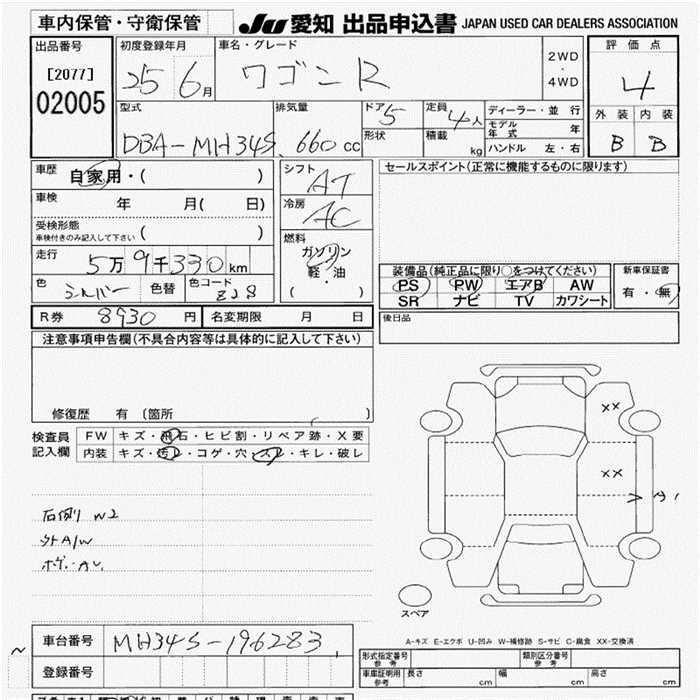 車内保管・守衛保管
JU 愛知 出品申込書 JAPAN USED CAR DEALERS ASSOCIATION
出品番号
[2077]
02005
初度登録年月
25 6月
車名・グレード
ワゴンR
2WD
・
4WD
評価点
4
外装 内装
B B
型式
DBA-MH34S
排気量
660 cc
ドア 5
形状
定員 4人
積載 kg
ディーラー・並行
モデル年式 年
ハンドル 左・右
車歴
自家用・( )
車検 年 月( 日)
受検形態
車検付きのみ記入して下さい ( )
走行
5万9千330km
色 シルバー 色替 色コード Z2S
シフト AT
冷房 AC
燃料
ガソリン
軽・油
( )
セールスポイント(正常に機能するものに限ります)
装備品(純正品に限り○をつけてください)
PS PW エアB AW
SR ナビ TV カワシート
新車保証書
有・無
R券 8930 円 名変期限 月 日
後日品
注意事項申告欄(不具合内容等は具体的に記入して下さい)
修復歴 有 〔箇所 〕
検査員記入欄
FW キズ・飛石・ヒビ割・リペア跡・X要
内装 キズ・汚レ・コゲ・穴・スレ・キレ・破レ
右側リ W2
外A/W
××
××
A1
スペア
A-キズ E-エクボ U-凹み W-補修跡 S-サビ C-腐食 XX-交換済
車台番号 MH34S-196283
登録番号
型式指定番号 参考
類別区分番号 参考
車庫証明用 参考 長さ cm 幅 cm 高さ cm